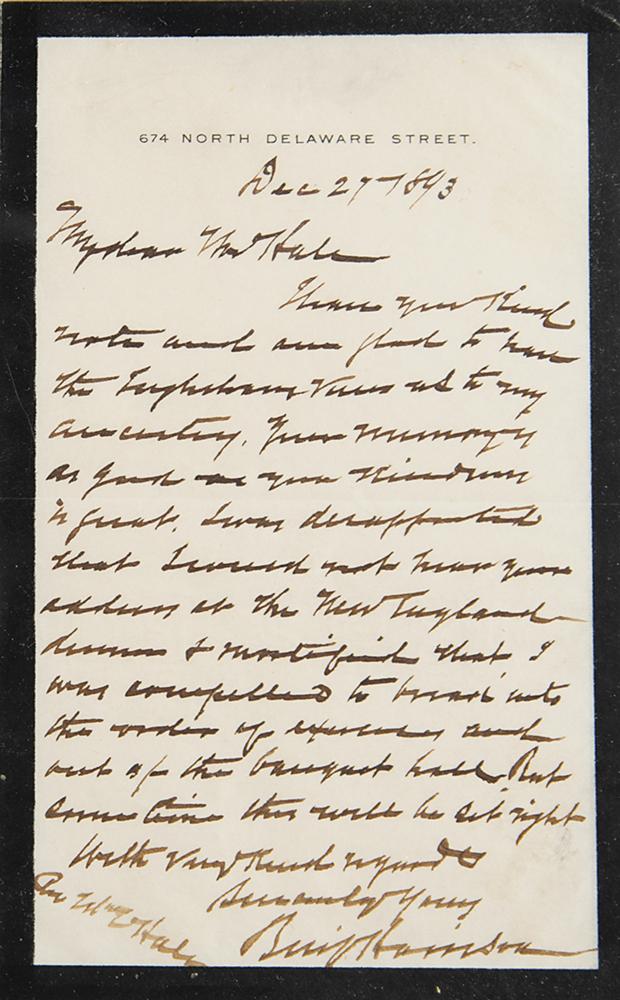 674 NORTH DELAWARE STREET.
Dec 27 1893
My dear Mr Hale
I have your kind
note and am glad to have
the views as to my
ancestry. Your memory is
as good as your kindness
is great. I was disappointed
that I could not hear your
address at the New England
dinner & mortified that I
was compelled to break into
the order of exercises and
out of the banquet hall. But
some time this will be set right
With very kind regards
Sincerely Yours
Benj Harrison
Rev Edw E Hale